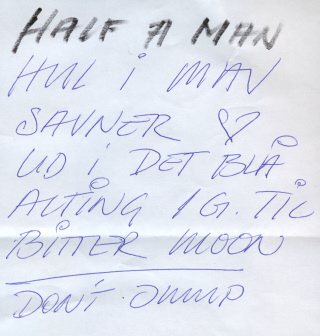 HALF A MAN
HUL I MAV
SAVNER ♡
UD I DET BLÅ
ALTING IG. TIL
BITTER MOON
DON'T JUMP